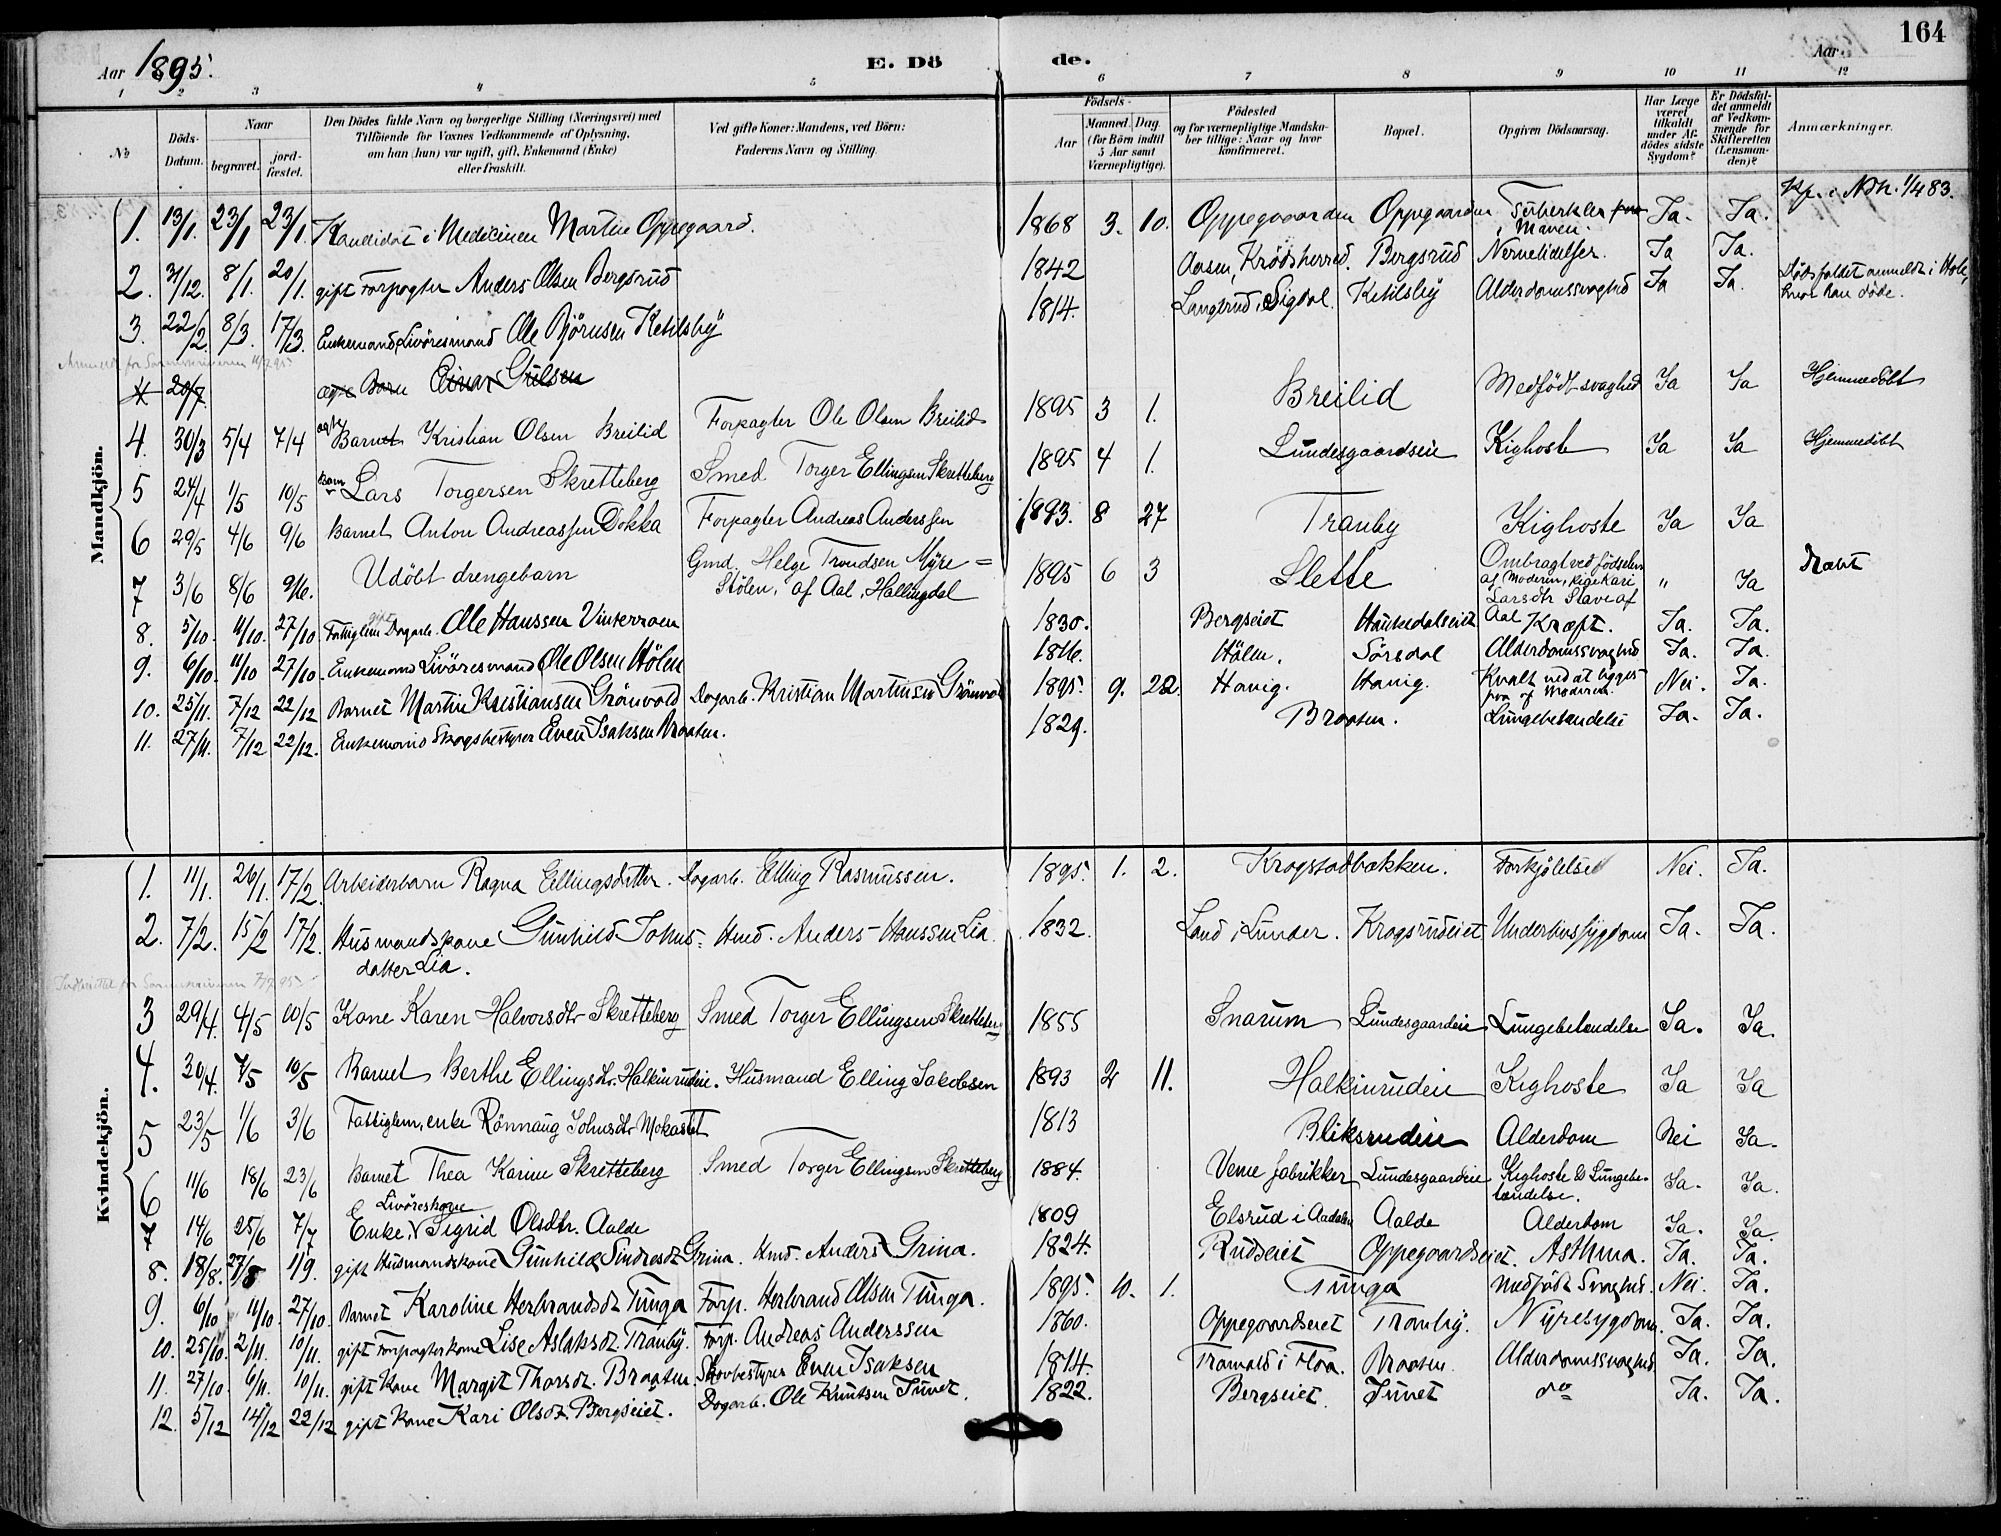 164
Aar 1895.
E. Dö
de.
Aar
1 2 3 4 5 6 7 8 9 10 11 12
№
Döds-Datum.
Naar
begravet.
jord-fæstet.
Den Dödes fulde Navn og borgerlige Stilling (Næringsvei) med
Tilföiende for Voxnes Vedkommende af Oplysning,
om han (hun) var ugift, gift, Enkemand (Enke)
eller fraskilt.
Ved gifte Koner: Mandens, ved Börn:
Faderens Navn og Stilling.
Födsels-
Aar
Maaned. Dag.
(for Börn indtil
5 Aar samt
Værnepligtige).
Födested
og for værnepligtige Mandska-
ber tillige: Naar og hvor
konfirmeret.
Bopæl.
Opgiven Dödsaarsag.
Har Læge
været
tilkaldt
under Af-
dödes sidste
Sygdom?
Er Dödsfal-
det anmeldt
af Vedkom-
mende for
Skifteretten
(Lensman-
den)?
Anmærkninger.
Mandkjön.
1. 13/1. 23/1 23/1. Kandidat i Medicinen Martin Oppegaard. 1868 3. 10. Oppegaarden Oppegaarden Tuberkler i Maven. Ja. Ja.
2. 31/12. 8/1. 20/1. gift Forpagter Anders Olsen Bergsrud 1842 Aasen, Krödsherred. Bergsrud Nervelidelser. Ja Ja. Dödsfaldet anmeldt i Hole, hvor han döde.
3. 22/2. 8/3. 17/3. Enkemand, Livöresmand Ole Björnsen Ketilsby 1814. Langerud i Sigdal. Ketilsby Alderdomssvaghed Ja Ja.
4 20/7. ægte Barn Einar Gulsen
4. 30/3 5/4 7/4 ægte Barnet Kristian Olsen Breilid Forpagter Ole Olsen Breilid 1895 3 1. Breilid Medfödt svaghed Ja Ja Hjemmedöbt
5 24/4 1/5 10/5 Barn Lars Torgersen Skretteberg Smed Torger Ellingsen Skretteberg 1895 4 1. Lundesgaardseie Kighoste Ja Ja Hjemmedöbt
6 29/5 4/6 9/6 Barnet Anton Andreassen Dokka Forpagter Andreas Anderssen 1893. 8 27 Tranby Kighoste Ja Ja
7 3/6 8/6 9/6. Udöbt drengebarn Gmd. Helge Trondsen Myre=Stölen, af Aal, Hallingdal 1895 6 3 Slette Ombragt ved födselen af Moderen, pige Kari Larsdtr Slave af Aal " Ja Dræbt
8. 5/10. 11/10. 27/10 Fattiglem gift Dagarb. Ole Hanssen Vinterroen 1830. Bergseiet Haukedalseiet Kræft. Ja. Ja.
9. 6/10. 11/10 27/10. Enkemand Livöresmand Ole Olsen Hölen 1816. Hölen. Sörsdal Alderdomssvaghed Ja. Ja.
10. 25/11. 7/12 22/12 Barnet Martin Kristiansen Grönvold Dagarb. Kristian Martinsen Grönvold 1895. 9. 22. Havig. Havig. Kvalt ved at ligges paa af Moderen. Nei. Ja.
11. 27/11. 7/12 22/12. Enkemand Skogbestyrer Even Isaksen Braaten. 1829. Braaten. Lungebetændelse Ja. Ja.
Kvindekjön.
1. 11/1. 26/1. 17/2. Arbeiderbarn Ragna Ellingsdatter. Dagarb. Elling Rasmussen. 1895. 1. 2. Krogstadbakken. Forkjölelse Nei. Ja.
2. 7/2. 15/2 17/2. Husmandskone Gunhild Johns-datter Lia. Hmd. Anders Hanssen Lia. 1832. Land i Lunder. Krogsrudeiet Underlivssygdom Ja. Ja.
3 29/4. 4/5 10/5 Kone Karen Halvorsdtr Skretteberg Smed Torger Ellingsen Skretteberg 1855 Snarum Lundesgaardeie Lungebetændelse Ja. Ja.
4. 30/4. 7/5 10/5 Barnet Berthe Ellingsdtr. Halkinrudeie. Husmand Elling Jakobsen 1893 2 11. Halkinrudeie Kighoste Ja Ja
5 23/5 1/6 3/6 Fattiglem, enke Rönnaug Johnsdtr Mokastet 1813 Bliksrudeie Alderdom Nei Ja.
6 11/6 18/6 23/6 Barnet Thea Karine Skretteberg Smed Torger Ellingsen Skretteberg 1884. Veme fabrikker Lundesgaardeie Kighoste & Lungebe-tændelse. Ja. Ja.
7 14/6 25/6 7/7 Enke, Livöreskone Sigrid Olsdtr. Aalde 1809 Elsrud i Aadalen Aalde Alderdom Ja. Ja.
8. 18/8. 27/8 1/9. gift Husmandskone Gunhild Sindresdtr Grina. Hmd. Anders Grina. 1824. Rudseiet Oppegaardseiet. Asthma. Ja. Ja.
9. 6/10 11/10. 27/10. Barnet Karoline Herbrandsdtr Tunga Forp. Herbrand Olsen Tunga. 1895. 10. 1. Tunga Medfödt Svaghed. Nei. Ja.
10. 25/10. 2/11. 10/11. gift Forpagterkone Lise Aslaksdtr. Tranby. Forp. Andreas Anderssen 1860. Oppegaardseiet Tranby. Nyresygdom. Ja. Ja.
11. 27/10. 6/11. 10/11. gift Kone Margit Thorsdtr. Braaten. Skovbestyrer Even Isaksen 1814. i Flaa. Braaten. Alderdomssvaghed Ja. Ja.
12. 5/12 14/12 22/12 gift Kone Kari Olsdtr. Bergseiet. Dagarb. Ole Knutsen Juvet. 1822. Bergseiet. Juvet do Ja. Ja.